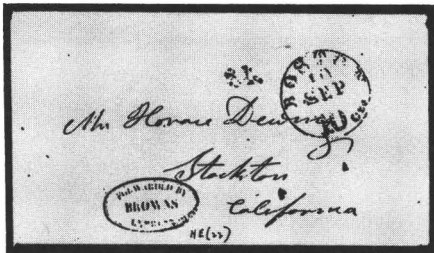 BOSTON
10
SEP
10 cts.
Mr Horace
Stockton
California
FORWARDED BY
BROWNS
EXPRESS